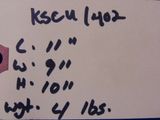 KSCU/402
L: 11"
W: 9"
H: 10"
wgt. 4 lbs.